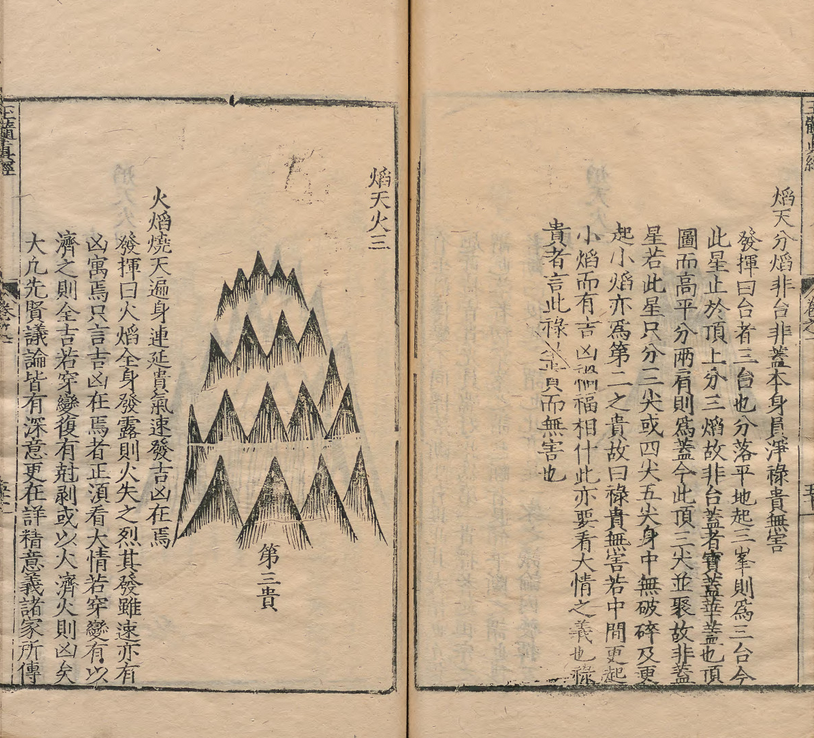 玉髓真經
卷之二
焰天分焰非台非蓋本身員淨祿貴無害
發揮曰台者三台也分落平地起三峯則爲三台今
此星止於頂上分三焰故非台蓋者寶蓋華蓋也頂
圓而高平分兩肩則爲蓋今此頂三尖並聚故非蓋
星若此星只分三尖或四尖五尖身中無破碎及更
起小焰亦爲第二之貴故曰祿貴無害若中間更起
小焰而有吉凶禍福相什此亦要看大情之義也祿
貴者言此祿 貴而無害也
焰天火三
第三貴
火焰燒天遍身連延貴氣速發吉凶在焉
發揮曰火焰全身發露則火失之烈其發雖速亦有
凶寓焉只言吉凶在焉者正湏看大情若穿變有以
濟之則全吉若穿變復有尅剥或以火濟火則凶矣
大凢先賢議論皆有深意更在詳精意義諸家所傳
玉髓真經